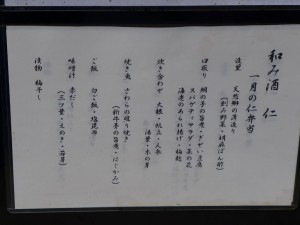 和み酒 仁
一月の仁弁当
造里 天然鰤の薄造り
(刻み野菜・胡麻ぽん酢)
口取り 鯛の子の旨煮・うずまき豆腐
スパゲティサラダ・菜の花
海老のあられ揚げ・梅麩
炊き合わせ 大根・帆立・人参
法蓮・木の芽
焼き魚 さわらの照り焼き
(新牛蒡の旨煮・はじかみ)
ご飯 白ご飯・塩昆布
味噌汁 赤だし
(三ツ葉・えのき・若芽)
漬物 梅干し